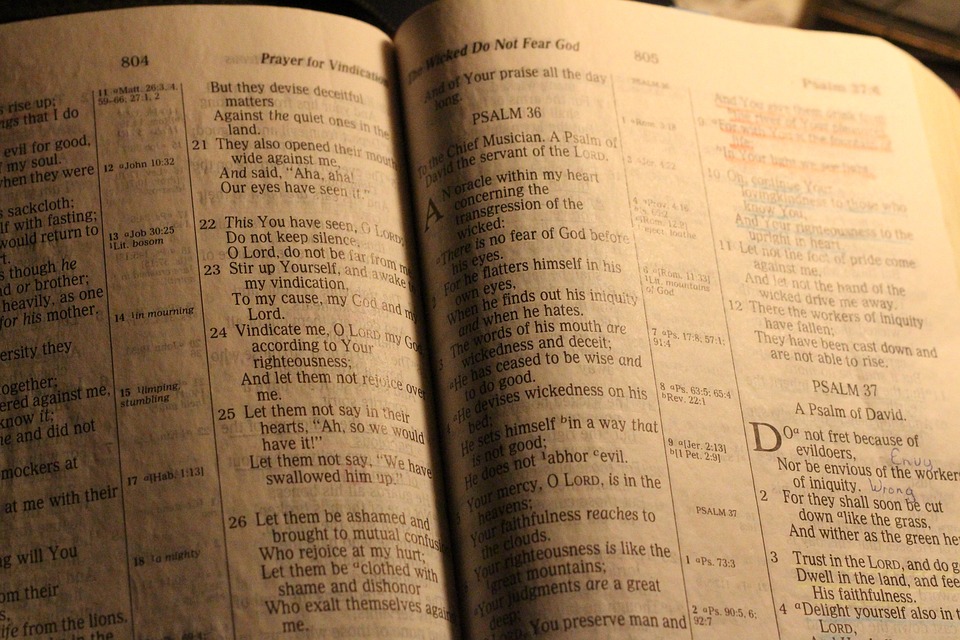 804
Prayer for Vindication
rise up;
ngs that I do
evil for good,
my soul.
when they were
sackcloth;
lf with fasting;
would return to
as though he
nd or brother;
heavily, as one
for his mother.
ersity they
ogether;
ered against me,
know it;
me and did not
mockers at
at me with their
ng will You
om their
life from the lions.
11 aMatt. 26:3, 4,
59–66; 27:1, 2
12 aJohn 10:32
13 aJob 30:25
1Lit. bosom
14 1in mourning
15 1limping,
stumbling
17 a[Hab. 1:13]
18 1a mighty
But they devise deceitful
matters
Against the quiet ones in the
land.
21 They also opened their mouth
wide against me,
And said, “Aha, aha!
Our eyes have seen it.”
22 This You have seen, O LORD
Do not keep silence.
O Lord, do not be far from me
23 Stir up Yourself, and awake
my vindication,
To my cause, my God and my
Lord.
24 Vindicate me, O LORD my God
according to Your
righteousness;
And let them not rejoice over
me.
25 Let them not say in their
hearts, “Ah, so we would
have it!”
Let them not say, “We have
swallowed him up.”
26 Let them be ashamed and
brought to mutual confus
Who rejoice at my hurt;
Let them be aclothed with
shame and dishonor
Who exalt themselves again
me.
The Wicked Do Not Fear God
805
Psalms 37:4
And of Your praise all the day
long.
PSALM 36
To the Chief Musician. A Psalm of
David the servant of the LORD.
AN oracle within my heart
concerning the
transgression of the
wicked:
There is no fear of God before
his eyes.
For he flatters himself in his
own eyes,
When he finds out his iniquity
and when he hates.
The words of his mouth are
wickedness and deceit;
aHe has ceased to be wise and
to do good.
aHe devises wickedness on his
bed;
He sets himself bin a way that
is not good;
He does not 1abhor cevil.
Your mercy, O LORD, is in the
heavens;
Your faithfulness reaches to
the clouds.
Your righteousness is like the
great mountains;
Your judgments are a great
deep;
LORD, You preserve man and
7 aPs. 17:8; 57:1;
91:4
8 aPs. 63:5; 65:4
bRev. 22:1
9 a[Jer. 2:13]
b[1 Pet. 2:9]
PSALM 37
1 aPs. 73:3
2 aPs. 90:5, 6;
92:7
9 aFor with You is the fountain of
life;
bIn Your light we see light.
10 Oh, continue Your
lovingkindness to those who
know You,
And Your righteousness to the
upright in heart.
11 Let not the foot of pride come
against me,
And let not the hand of the
wicked drive me away.
12 There the workers of iniquity
have fallen;
They have been cast down and
are not able to rise.
PSALM 37
A Psalm of David.
DOa not fret because of
evildoers,
Envy
Nor be envious of the workers
of iniquity. Wrong
2 For they shall soon be cut
down alike the grass,
And wither as the green he
3 Trust in the LORD, and do g
Dwell in the land, and fee
His faithfulness.
4 aDelight yourself also in t
LORD,